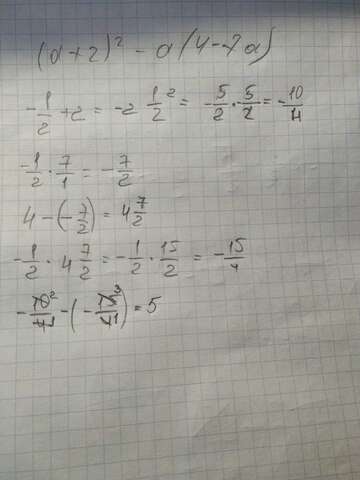 (a+2)² - a(4-7a)
-1/2 + 2 = -2 1/2² = -5/2 · 5/2 = -10/4
-1/2 · 7/1 = -7/2
4 - (-7/2) = 4 7/2
-1/2 · 4 7/2 = -1/2 · 15/2 = -15/4
-10²/41 - (-15³/41) = 5